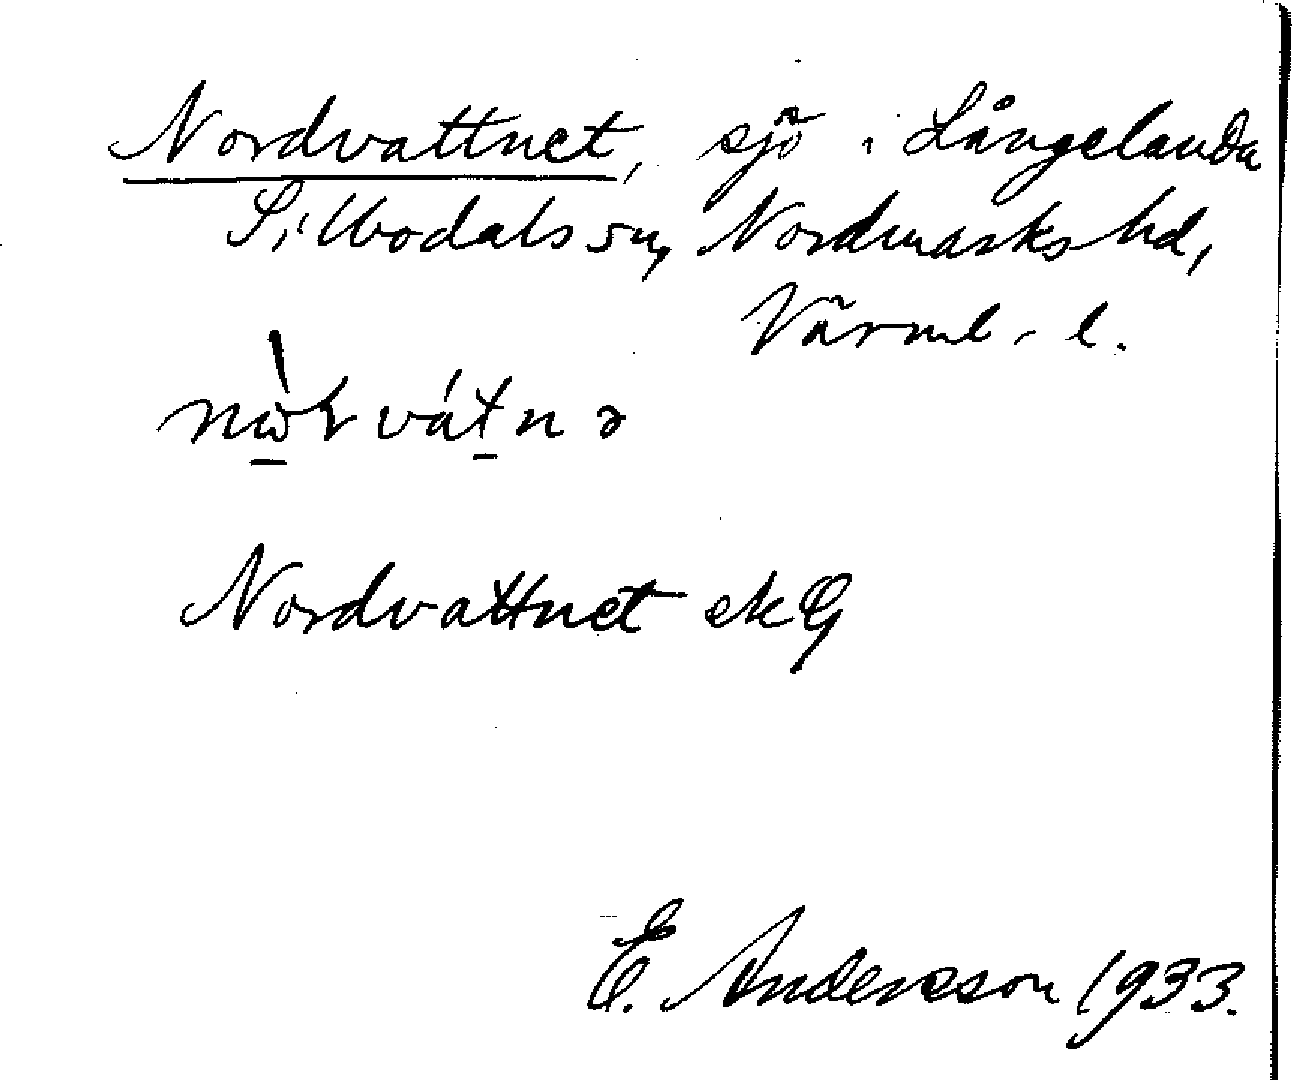 Nordvattnet, sjö i Långelanda
Silbodals sn, Nordmarks hd,
Värml. l.
Nordvattnet ekG
E. Andersson 1933.